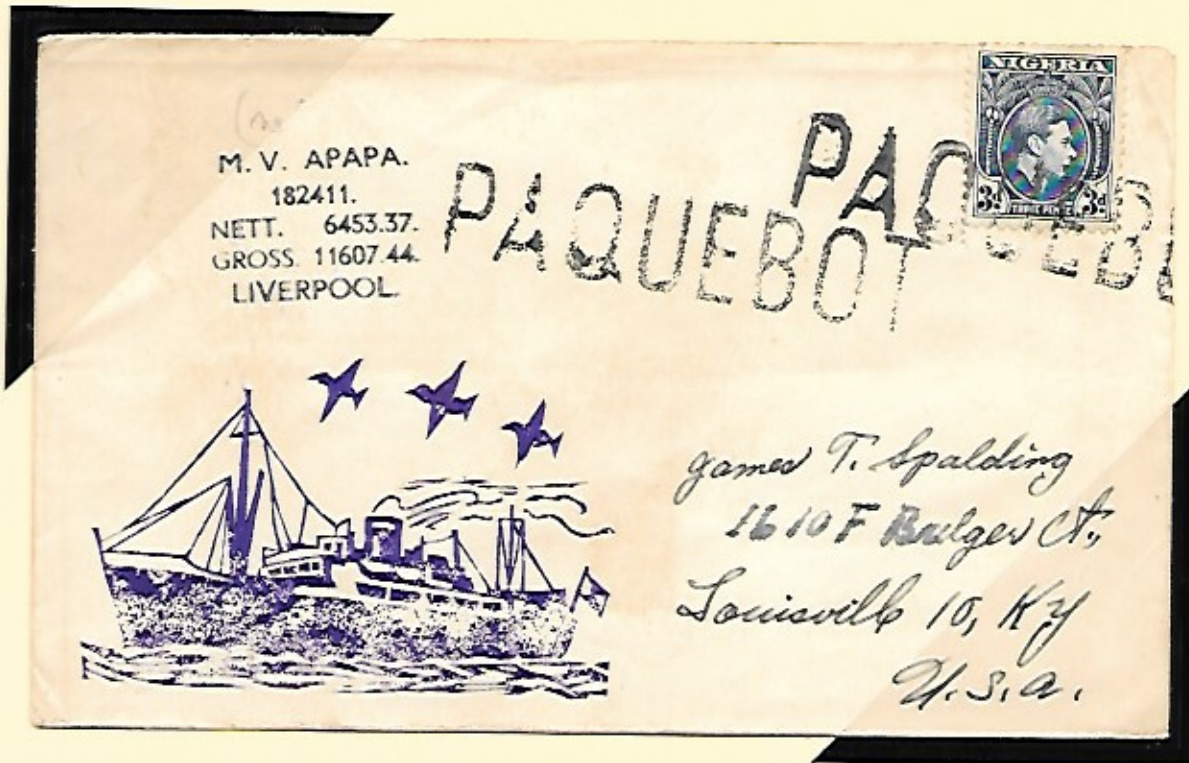 M. V. APAPA.
182411.
NETT. 6453.37.
GROSS. 11607.44.
LIVERPOOL.
PAQUEBOT
PAQUEB
NIGERIA
3d THREE PENCE 3d
James T. Spalding
1610 F Bulger Ct,,
Louisville 10, Ky
U.S.A.